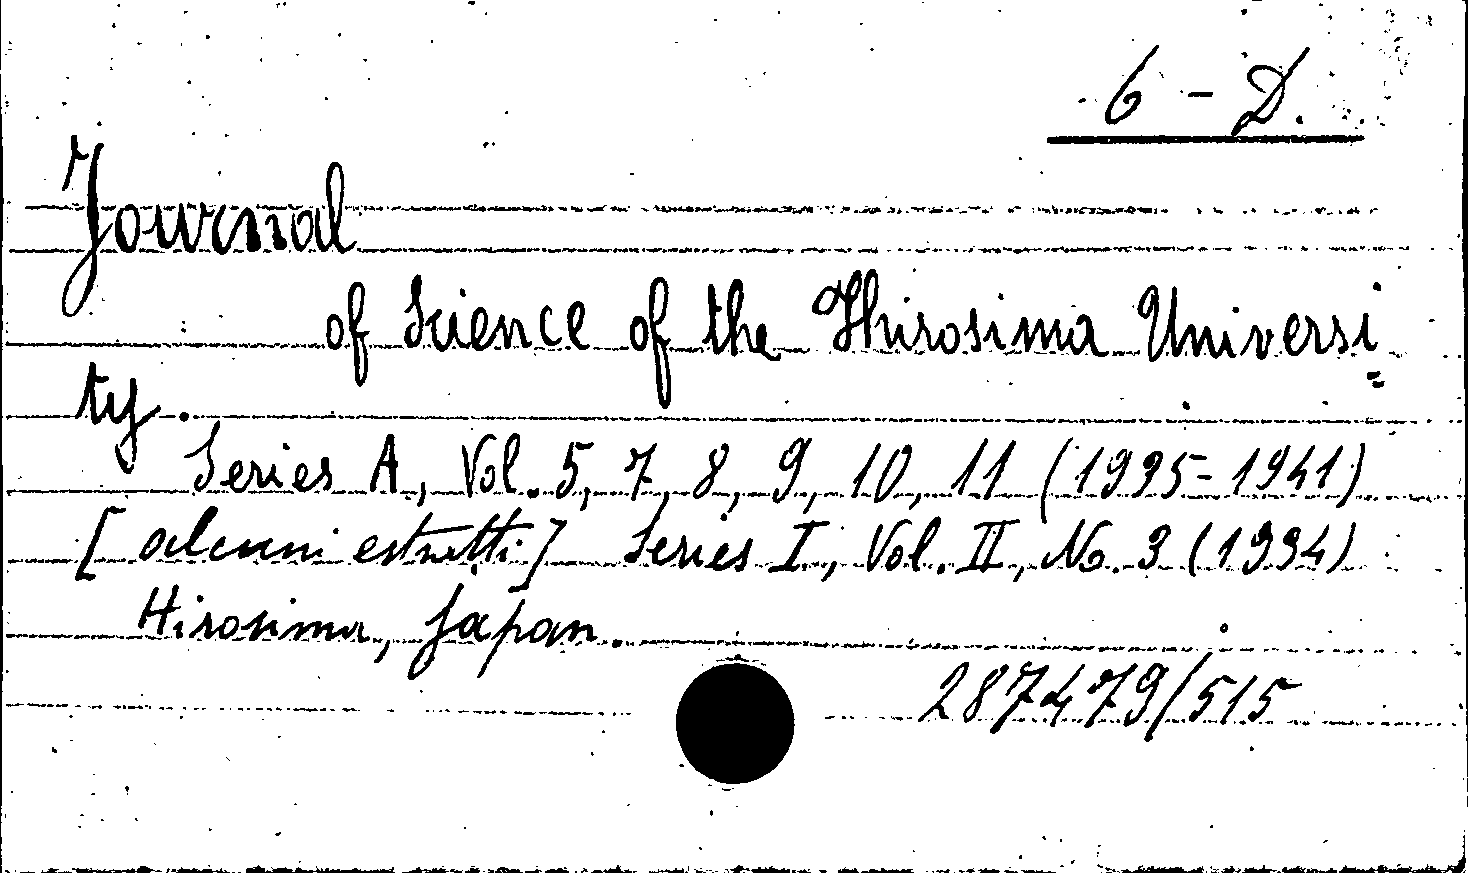 6 - D.
Journal
of Science of the Hhirosima Universi=
ty.
Series A, Vol. 5, 7, 8, 9, 10, 11 (1935-1941)
[alcuni estratti] Series I, Vol. II, No. 3 (1934)
Hirosima, Japan.
287479/515